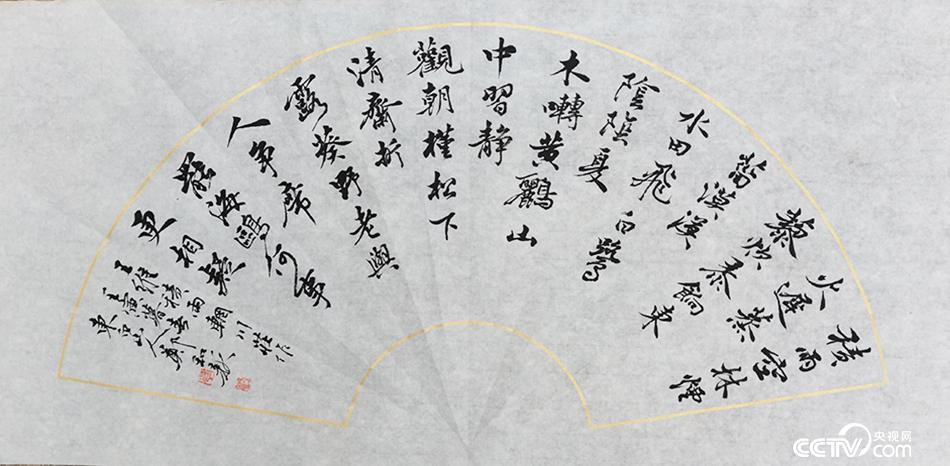 積雨空林煙
火遲蒸
藜炊黍餉東
菑漠漠
水田飛白鷺
陰陰夏
木囀黃鸝山
中習靜
觀朝槿松下
清齋折
露葵野老與
人爭席
罷海鷗何事
更相疑
王維積雨輞川莊作
山人鄭
央视网
CCTV.com